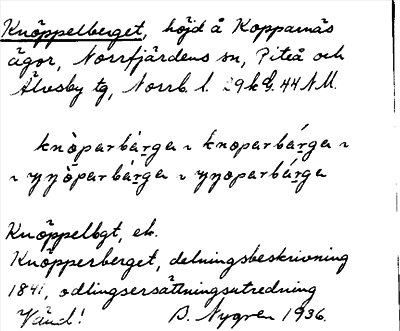 Knöppelberget, höjd å Kopparnäs
ägor, Norrfjärdens sn, Piteå och
Älvsby tg, Norrb. l. 29 k 44 NM.
knòparbárga ~ knoparbárga ~
~ ŋŋòparbárga ~ ŋŋoparbárga
Knöppelbgt, ek.
Knöpperberget, delningsbeskrivning
1841, odlingsersättningsutredning
Vänd! B. Nygren 1936.